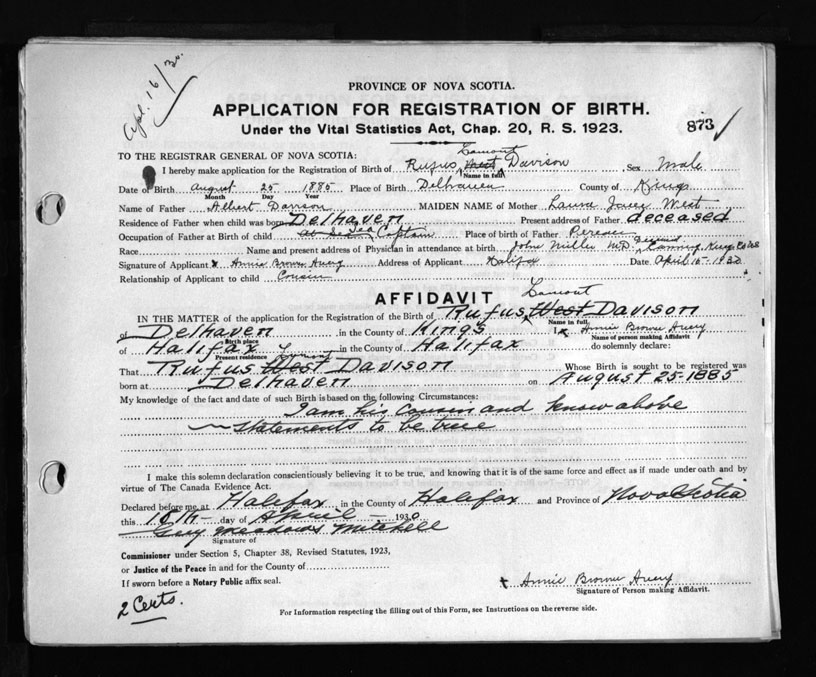 Apl. 16/30.
PROVINCE OF NOVA SCOTIA.
APPLICATION FOR REGISTRATION OF BIRTH.
Under the Vital Statistics Act, Chap. 20, R. S. 1923.
873
TO THE REGISTRAR GENERAL OF NOVA SCOTIA:
Lamont
I hereby make application for the Registration of Birth of Rufus West Davison Sex Male
Name in full
Date of Birth August 25 1885 Place of Birth Delhaven County of Kings
Month Day Year
Name of Father Albert Davison MAIDEN NAME of Mother Laura West
Residence of Father when child was born Delhaven Present address of Father deceased
Occupation of Father at Birth of child at Sea Sea Captain Place of birth of Father
Race Name and present address of Physician in attendance at birth John Miller M.D. Canning Kings Co NS
Signature of Applicant x Annie Brown Avery Address of Applicant Halifax Date April 15-1930
Relationship of Applicant to child Cousin
AFFIDAVIT
Lamont
IN THE MATTER of the application for the Registration of the Birth of Rufus West Davison
Name in full
of Delhaven in the County of King's I, x Annie Brown Avery
Birth place Name of person making Affidavit
of Halifax in the County of Halifax do solemnly declare:
Present residence Lamont
That Rufus West Davison Whose Birth is sought to be registered was
born at Delhaven on August 25-1885
My knowledge of the fact and date of such Birth is based on the following Circumstances:
I am his Cousin and know above
statements to be true
I make this solemn declaration conscientiously believing it to be true, and knowing that it is of the same force and effect as if made under oath and by
virtue of The Canada Evidence Act.
Declared before me, at Halifax in the County of Halifax and Province of Nova Scotia
this day of April 1930
Meadows Mitchell
Signature of
Commissioner under Section 5, Chapter 38, Revised Statutes, 1923,
or Justice of the Peace in and for the County of
If sworn before a Notary Public affix seal.
x Annie Brown Avery
Signature of Person making Affidavit.
2 Certs.
For Information respecting the filling out of this Form, see Instructions on the reverse side.